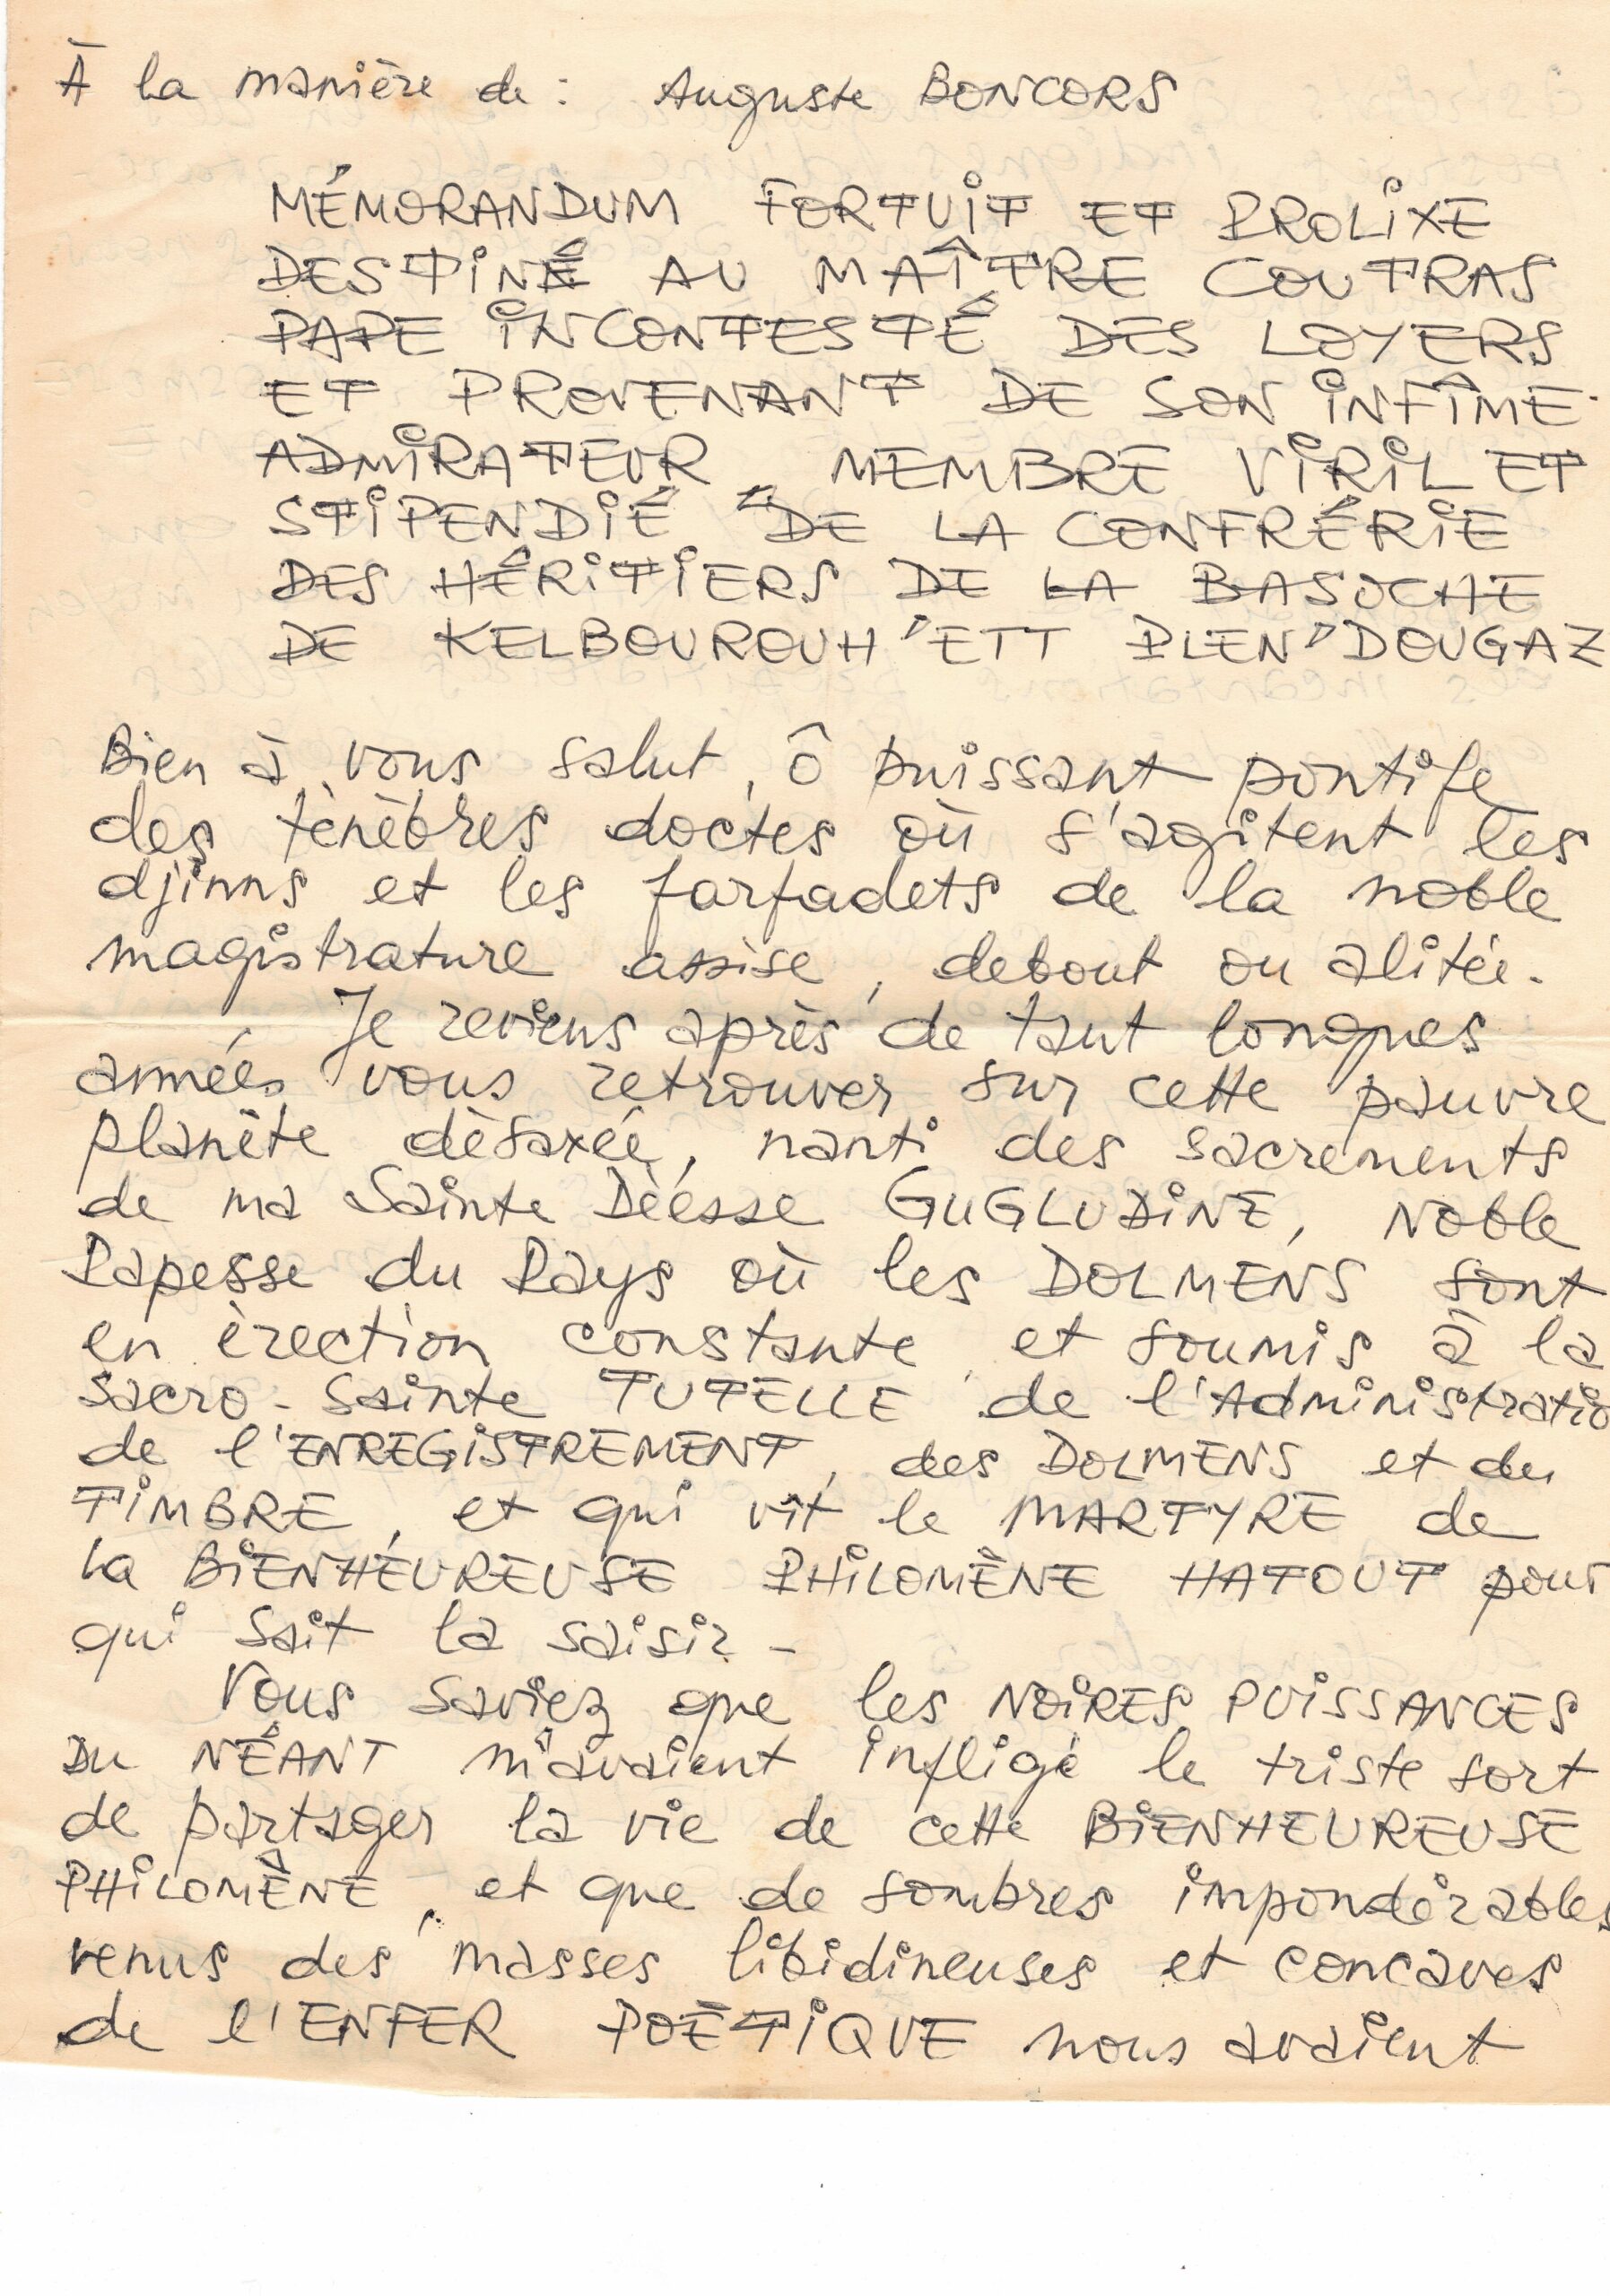 À la manière de : Auguste BONCORS
MÉMORANDUM FORTUIT ET PROLIXE
DESTINÉ AU MAÎTRE COUTRAS
PAPE INCONTESTÉ DES LOYERS
ET PROVENANT DE SON INFÎME
ADMIRATEUR, MEMBRE VIRIL ET
STIPENDIÉ DE LA CONFRÉRIE
DES HÉRITIERS DE LA BASOCHE
DE KELBOUROUH'ETT PLEN'DOUGAZ
Bien à vous salut, ô puissant pontife
des ténèbres doctes où s'agitent les
djinns et les farfadets de la noble
magistrature assise, debout ou alitée.
Je reviens après de tant longues
années vous retrouver sur cette pauvre
planète désaxée, nanti des sacrements
de ma Sainte Déesse GUGLUDINE, Noble
Papesse du Pays où les DOLMENS sont
en érection constante et soumis à la
sacro-sainte TUTELLE de l'Administratio
de l'ENREGISTREMENT, des DOLMENS et du
TIMBRE, et qui vit le MARTYRE de
la BIENHEUREUSE PHILOMÈNE HATOUT pour
qui sait la saisir -
Vous saviez que les NOIRES PUISSANCES
DU NÉANT m'avaient infligé le triste sort
de partager la vie de cette BIENHEUREUSE
PHILOMÈNE, et que de sombres impondérables
venus des masses libidineuses et concaves
de l'ENFER POÉTIQUE nous avaient